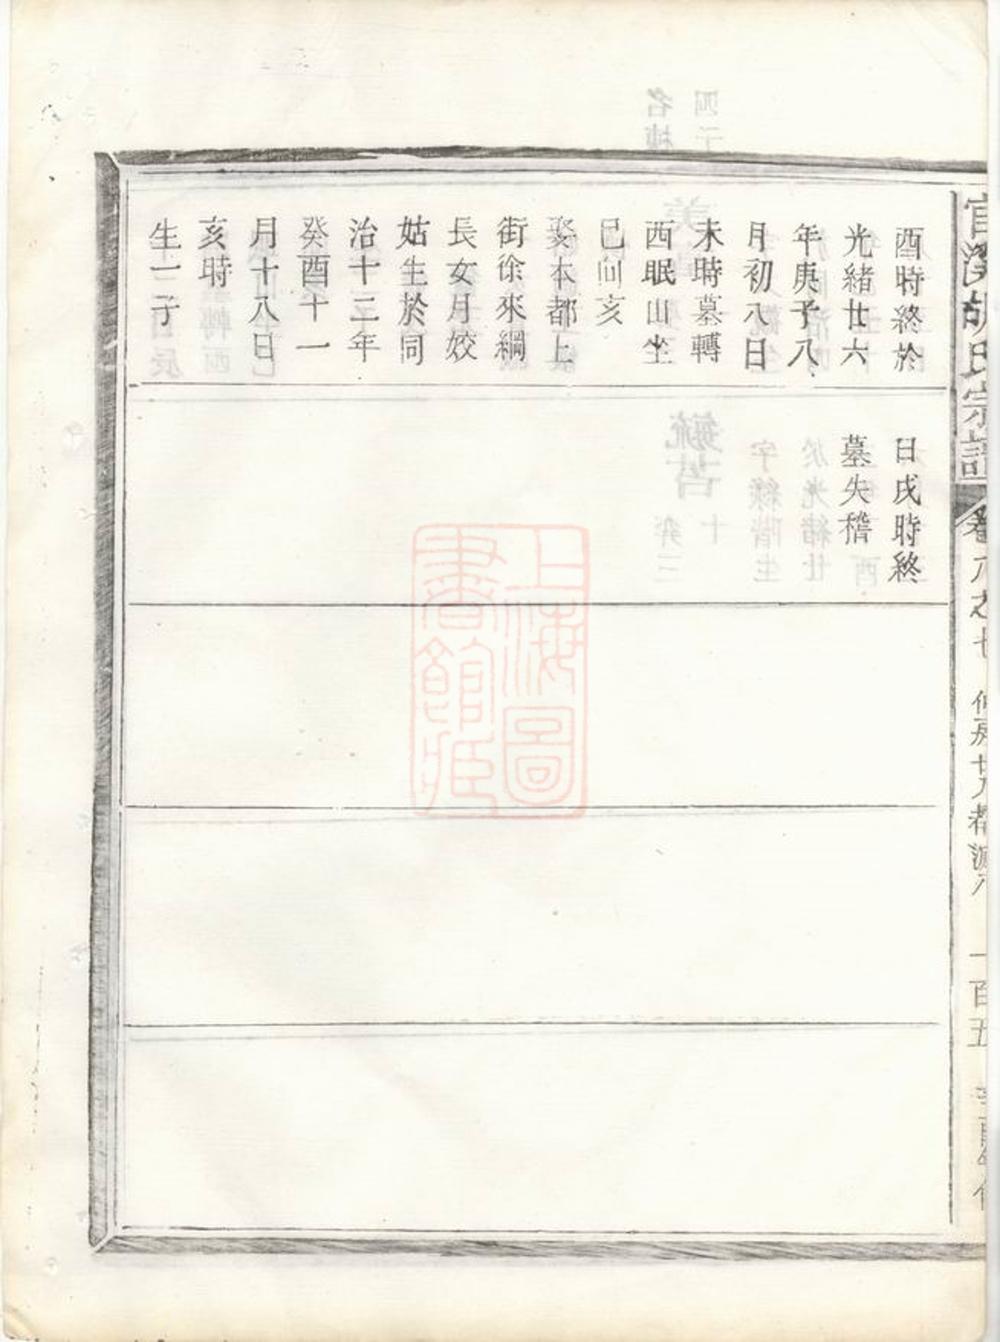 官溪胡氏宗譜
卷八之七
仲房廿八都派八
一百五
酉時終於
光緒廿六
年庚子八
月初八日
未時墓轉
西眠山坐
巳向亥
娶本都上
街徐來綱
長女月姣
姑生於同
治十二年
癸酉十一
月十八日
亥時
生一子
日戌時終
墓失稽
上海圖
書館藏